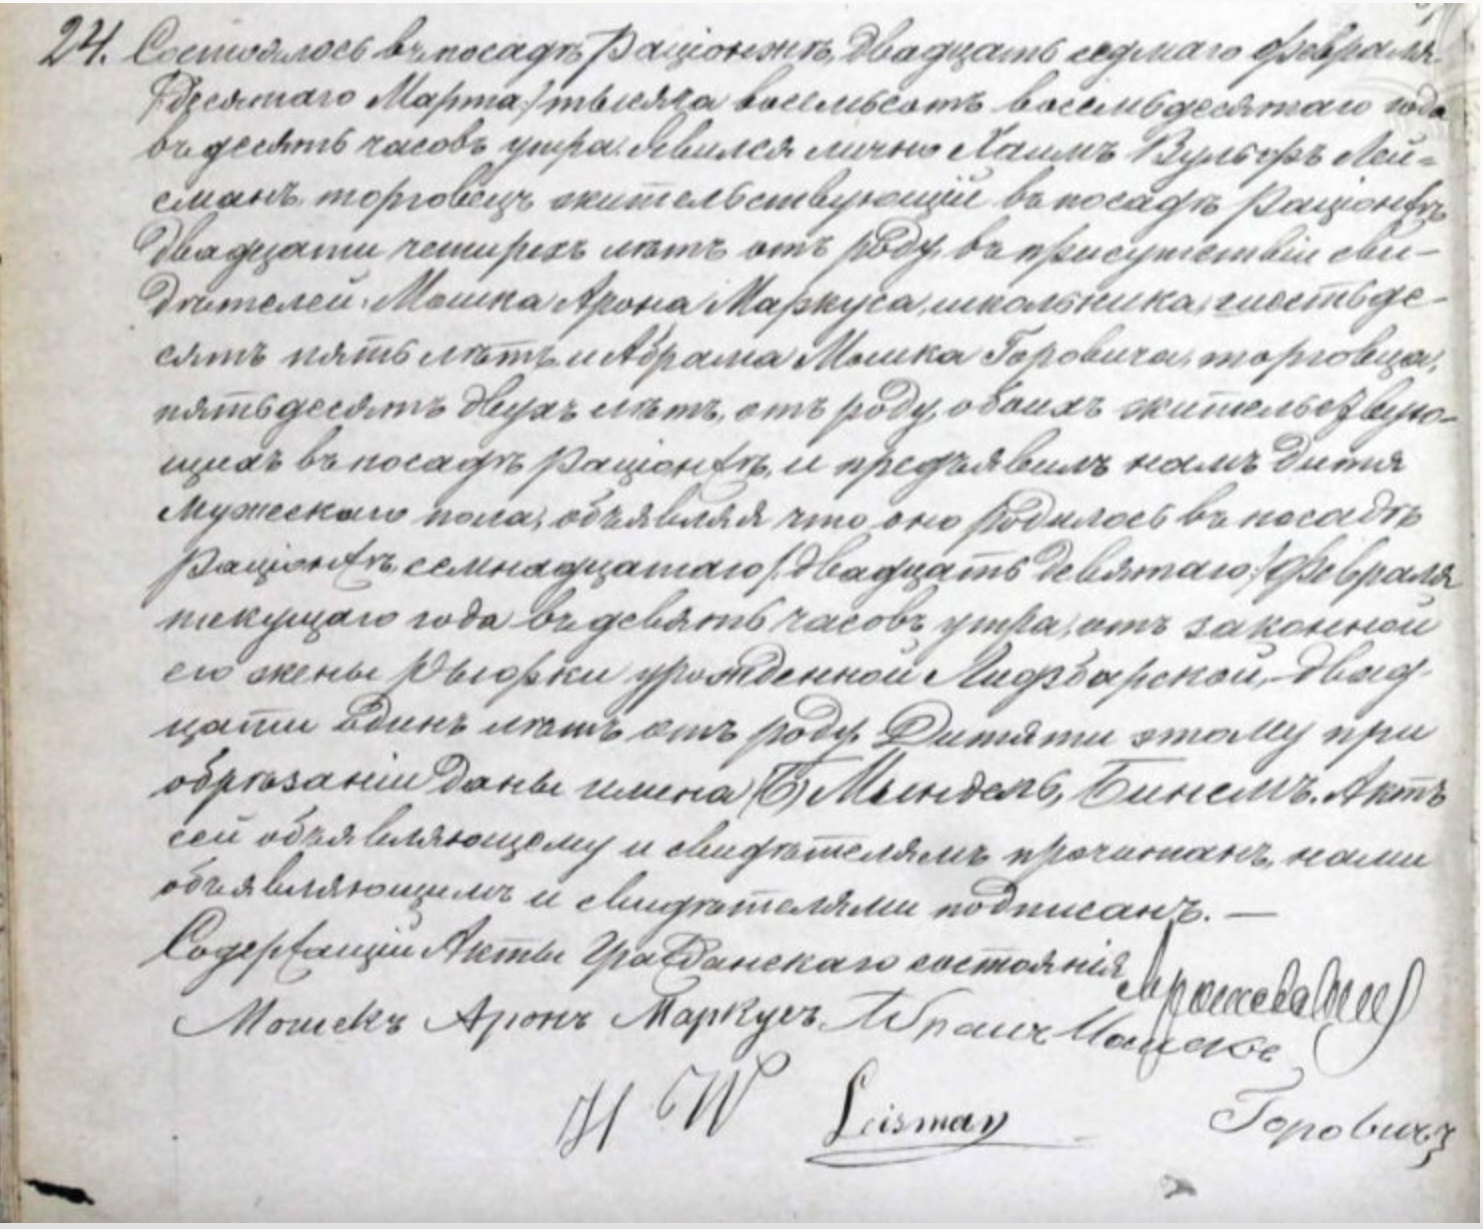 24. Состоялось въ посадѣ Раціонжѣ, двадцать седмаго февраля
/:десятаго Марта:/ тысяча восемьсотъ восемьдесятаго года
въ десять часовъ утра. Явился лично Хаимъ Вульфъ Лей-
сманъ, торговецъ жительствующій въ посадѣ Раціонжѣ
двадцати четырехъ лѣтъ отъ роду, въ присутствіи сви-
дѣтелей: Мошка Арона Маркуса, школьника, шестьде-
сятъ пять лѣтъ и Абрама Мошка Горовича, торговца,
пятьдесятъ двухъ лѣтъ, отъ роду, обоихъ жительствую-
щихъ въ посадѣ Раціонжѣ, и предъявилъ намъ дитя
мужескаго пола, объявляя что оно родилось въ посадѣ
Раціонжѣ семнадцатаго /:двадцать девятаго:/ февраля
текущаго года въ девять часовъ утра, отъ законной
его жены урожденной двад-
цати одинъ лѣтъ отъ роду. Дитяти этому при
обрѣзаніи даны имена (Б) Мындель, Бинемъ. Актъ
сей объявляющему и свидѣтелямъ прочитанъ, нами
объявляющимъ и свидѣтелями подписанъ. —
Содержащій Акты Гражданскаго состоянія
Мошекъ Аронъ Маркусъ. Абрамъ Мошекъ
H W Leisman Горовичъ